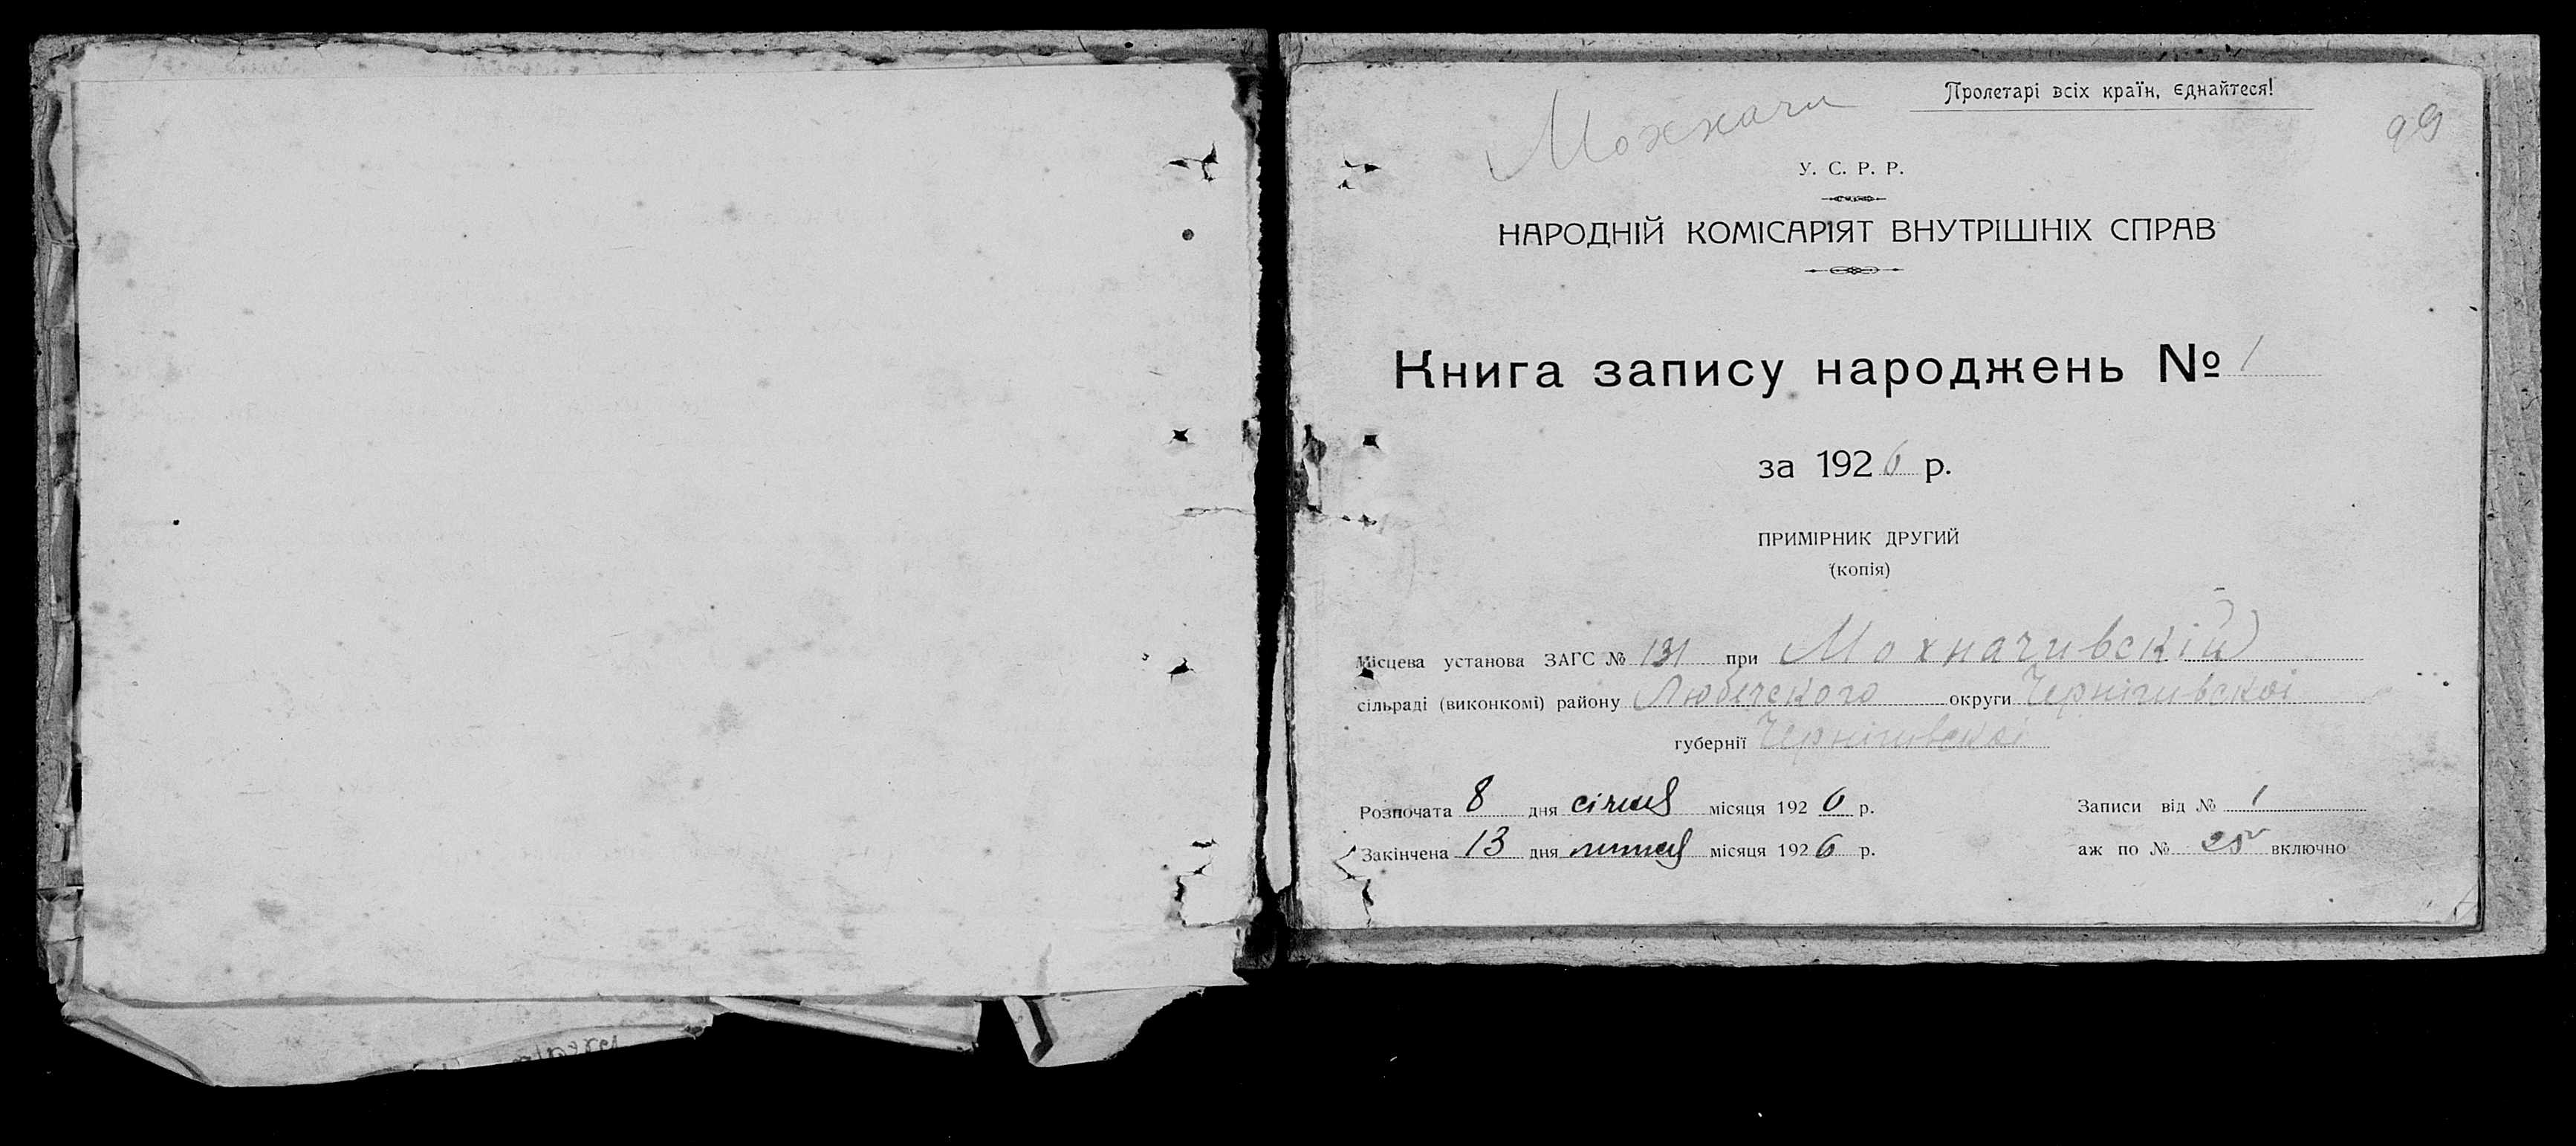 Пролетарі всіх країн, єднайтеся!
Мохначи
99
У. С. Р. Р.
НАРОДНІЙ КОМІСАРІЯТ ВНУТРІШНІХ СПРАВ
Книга запису народжень № 1
за 1926 р.
ПРИМІРНИК ДРУГИЙ
(копія)
Місцева установа ЗАГС № 131 при Мохначивскій
сільраді (виконкомі) району Любечского округи Чернігивскоі
губернії Чернігивскоі
Розпочата 8 дня січня місяця 1926 р.
Записи від № 1
Закінчена 13 дня липня місяця 1926 р.
аж по № 25 включно